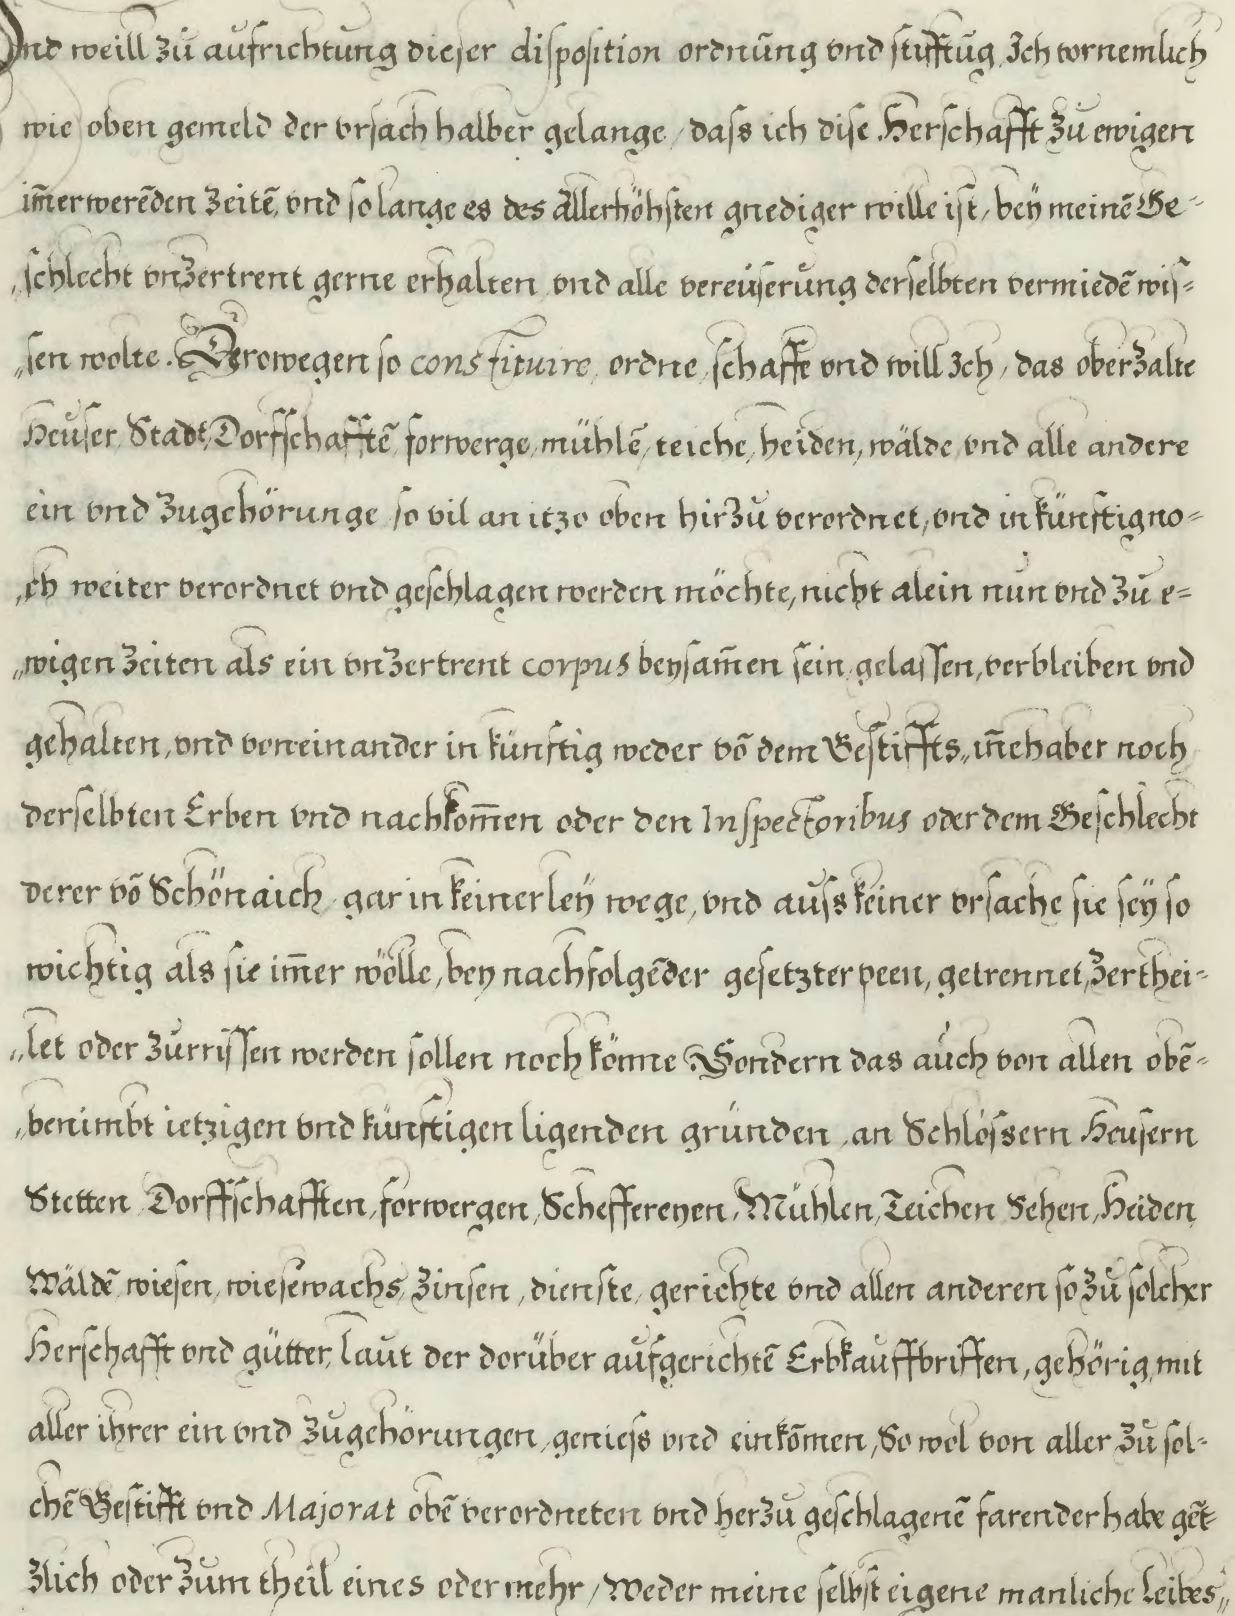 Vnd weill zů aůfrichtůng dieser disposition ordnůng vnd stifftūg, Ich vornemlich
wie oben gemeld der vrsach halber gelange, dass ich dise Herschafft zů ewigen
im̄erwerēden zeitē, vnd so lange es des Allerhöhsten gnediger wille ist, beÿ meinē Ge-
„schlecht vnzertrent gerne erhalten vnd alle vereüserůng derselbten vermiedē wis=
„sen wolte. Derowegen so constituire, ordne, schaffe vnd will Ich, das oberzalte
Heůser, Stadt, Dorfschafftē, forwerge, mühlē, teiche, heiden, wälde, vnd alle andere
ein vnd zugehörunge so vil an itzo oben hirzů verordnet, vnd in künftig no=
„ch weiter verordnet vnd geschlagen werden möchte, nicht alein nůn vnd zů e=
„wigen zeiten als ein vnzertrent corpus beysam̄en sein, gelassen, verbleiben vnd
gehalten, vnd voneinander in künftig weder vō dem Gestiffts„ in̄ehaber noch
derselbten Erben vnd nachkom̄en oder den Inspectoribus oder dem Geschlecht
derer vō Schönaich, gar in keinerleÿ wege, vnd aůss keiner vrsache sie seÿ so
wichtig als sie im̄er wölle, bey nachfolgēder gesetzter peen, getrennet, zerthei-
„let oder zůrrissen werden sollen noch könne. Sondern das aůch von allen obē-
„benimbt ietzigen vnd künftigen ligenden gründen, an Schlössern Heusern
Stetten, Dorffschafften, forwergen, Scheffereyen, Mühlen, Teichen Sehen, Heiden,
Wäldē, wiesen, wiesēwachs, zinsen, dienste, gerichte vnd allen anderen so zů solcher
Herschafft vnd gütter, laůt der dorüber aůfgerichtē Erbkauffbriffen, gehörig, mit
aller ihrer ein vnd zůgehörungen, geniess vnd einkōmen, So wol von aller zů sol-
chē Gestifft vnd Majorat obē verordneten vnd herzů geschlagenē farender habe gēt-
zlich oder zům theil eines oder mehr, Weder meine selbst eigene manliche Leibes„